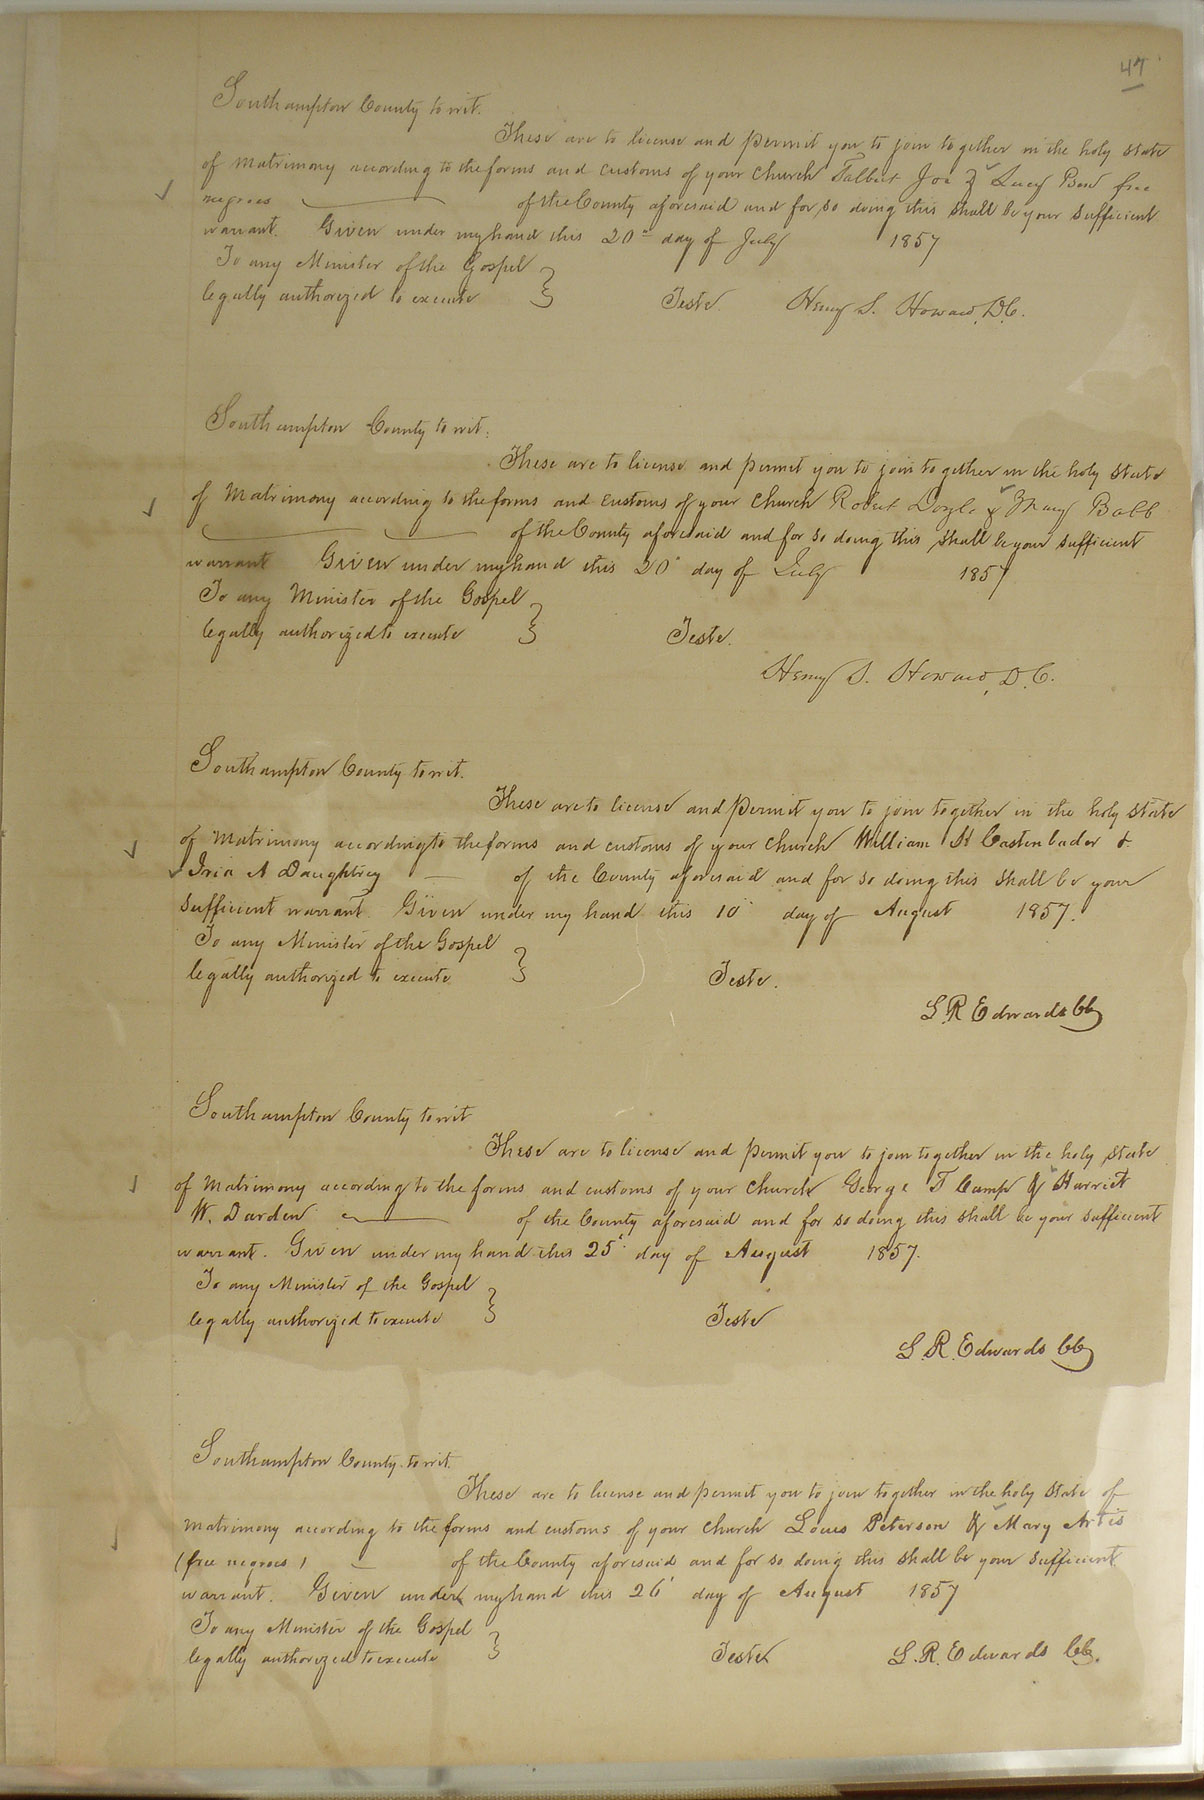 47
Southampton County to wit.
These are to license and permit you to join together in the holy state
of Matrimony according to the forms and customs of your Church Talbert Joe & Lucy Bow free
negroes of the County aforesaid and for so doing this shall be your sufficient
warrant. Given under my hand this 20th day of July 1857
To any Minister of the Gospel
legally authorized to execute } Teste Henry S. Howard, D.C.
Southampton County to wit:
These are to license and permit you to join together in the holy state
of Matrimony according to the forms and customs of your Church Robert Doyle & Mary Babb
of the County aforesaid and for so doing this shall be your sufficient
warrant Given under my hand this 20 day of July 1857
To any Minister of the Gospel
legally authorized to execute } Teste.
Henry S. Howard, D.C.
Southampton County to wit.
These are to license and permit you to join together in the holy state
of Matrimony according to the forms and customs of your Church William H Castenbader &
Iria A Daughtrey of the County aforesaid and for so doing this shall be your
sufficient warrant. Given under my hand this 10 day of August 1857.
To any Minister of the Gospel
legally authorized to execute } Teste.
L. R. Edwards CC
Southampton County to wit
These are to license and permit you to join together in the holy state
of Matrimony according to the forms and customs of your Church George T Camp & Harriet
W. Darden of the County aforesaid and for so doing this shall be your sufficient
warrant. Given under my hand this 25 day of August 1857.
To any Minister of the Gospel
legally authorized to execute } Teste
L. R. Edwards CC
Southampton County to wit.
These are to license and permit you to join together in the holy State of
Matrimony according to the forms and customs of your Church Louis Peterson & Mary Artis
(free negroes) of the County aforesaid and for so doing this shall be your sufficient
warrant. Given under my hand this 26 day of August 1857
To any Minister of the Gospel
legally authorized to execute } Teste L. R. Edwards CC.